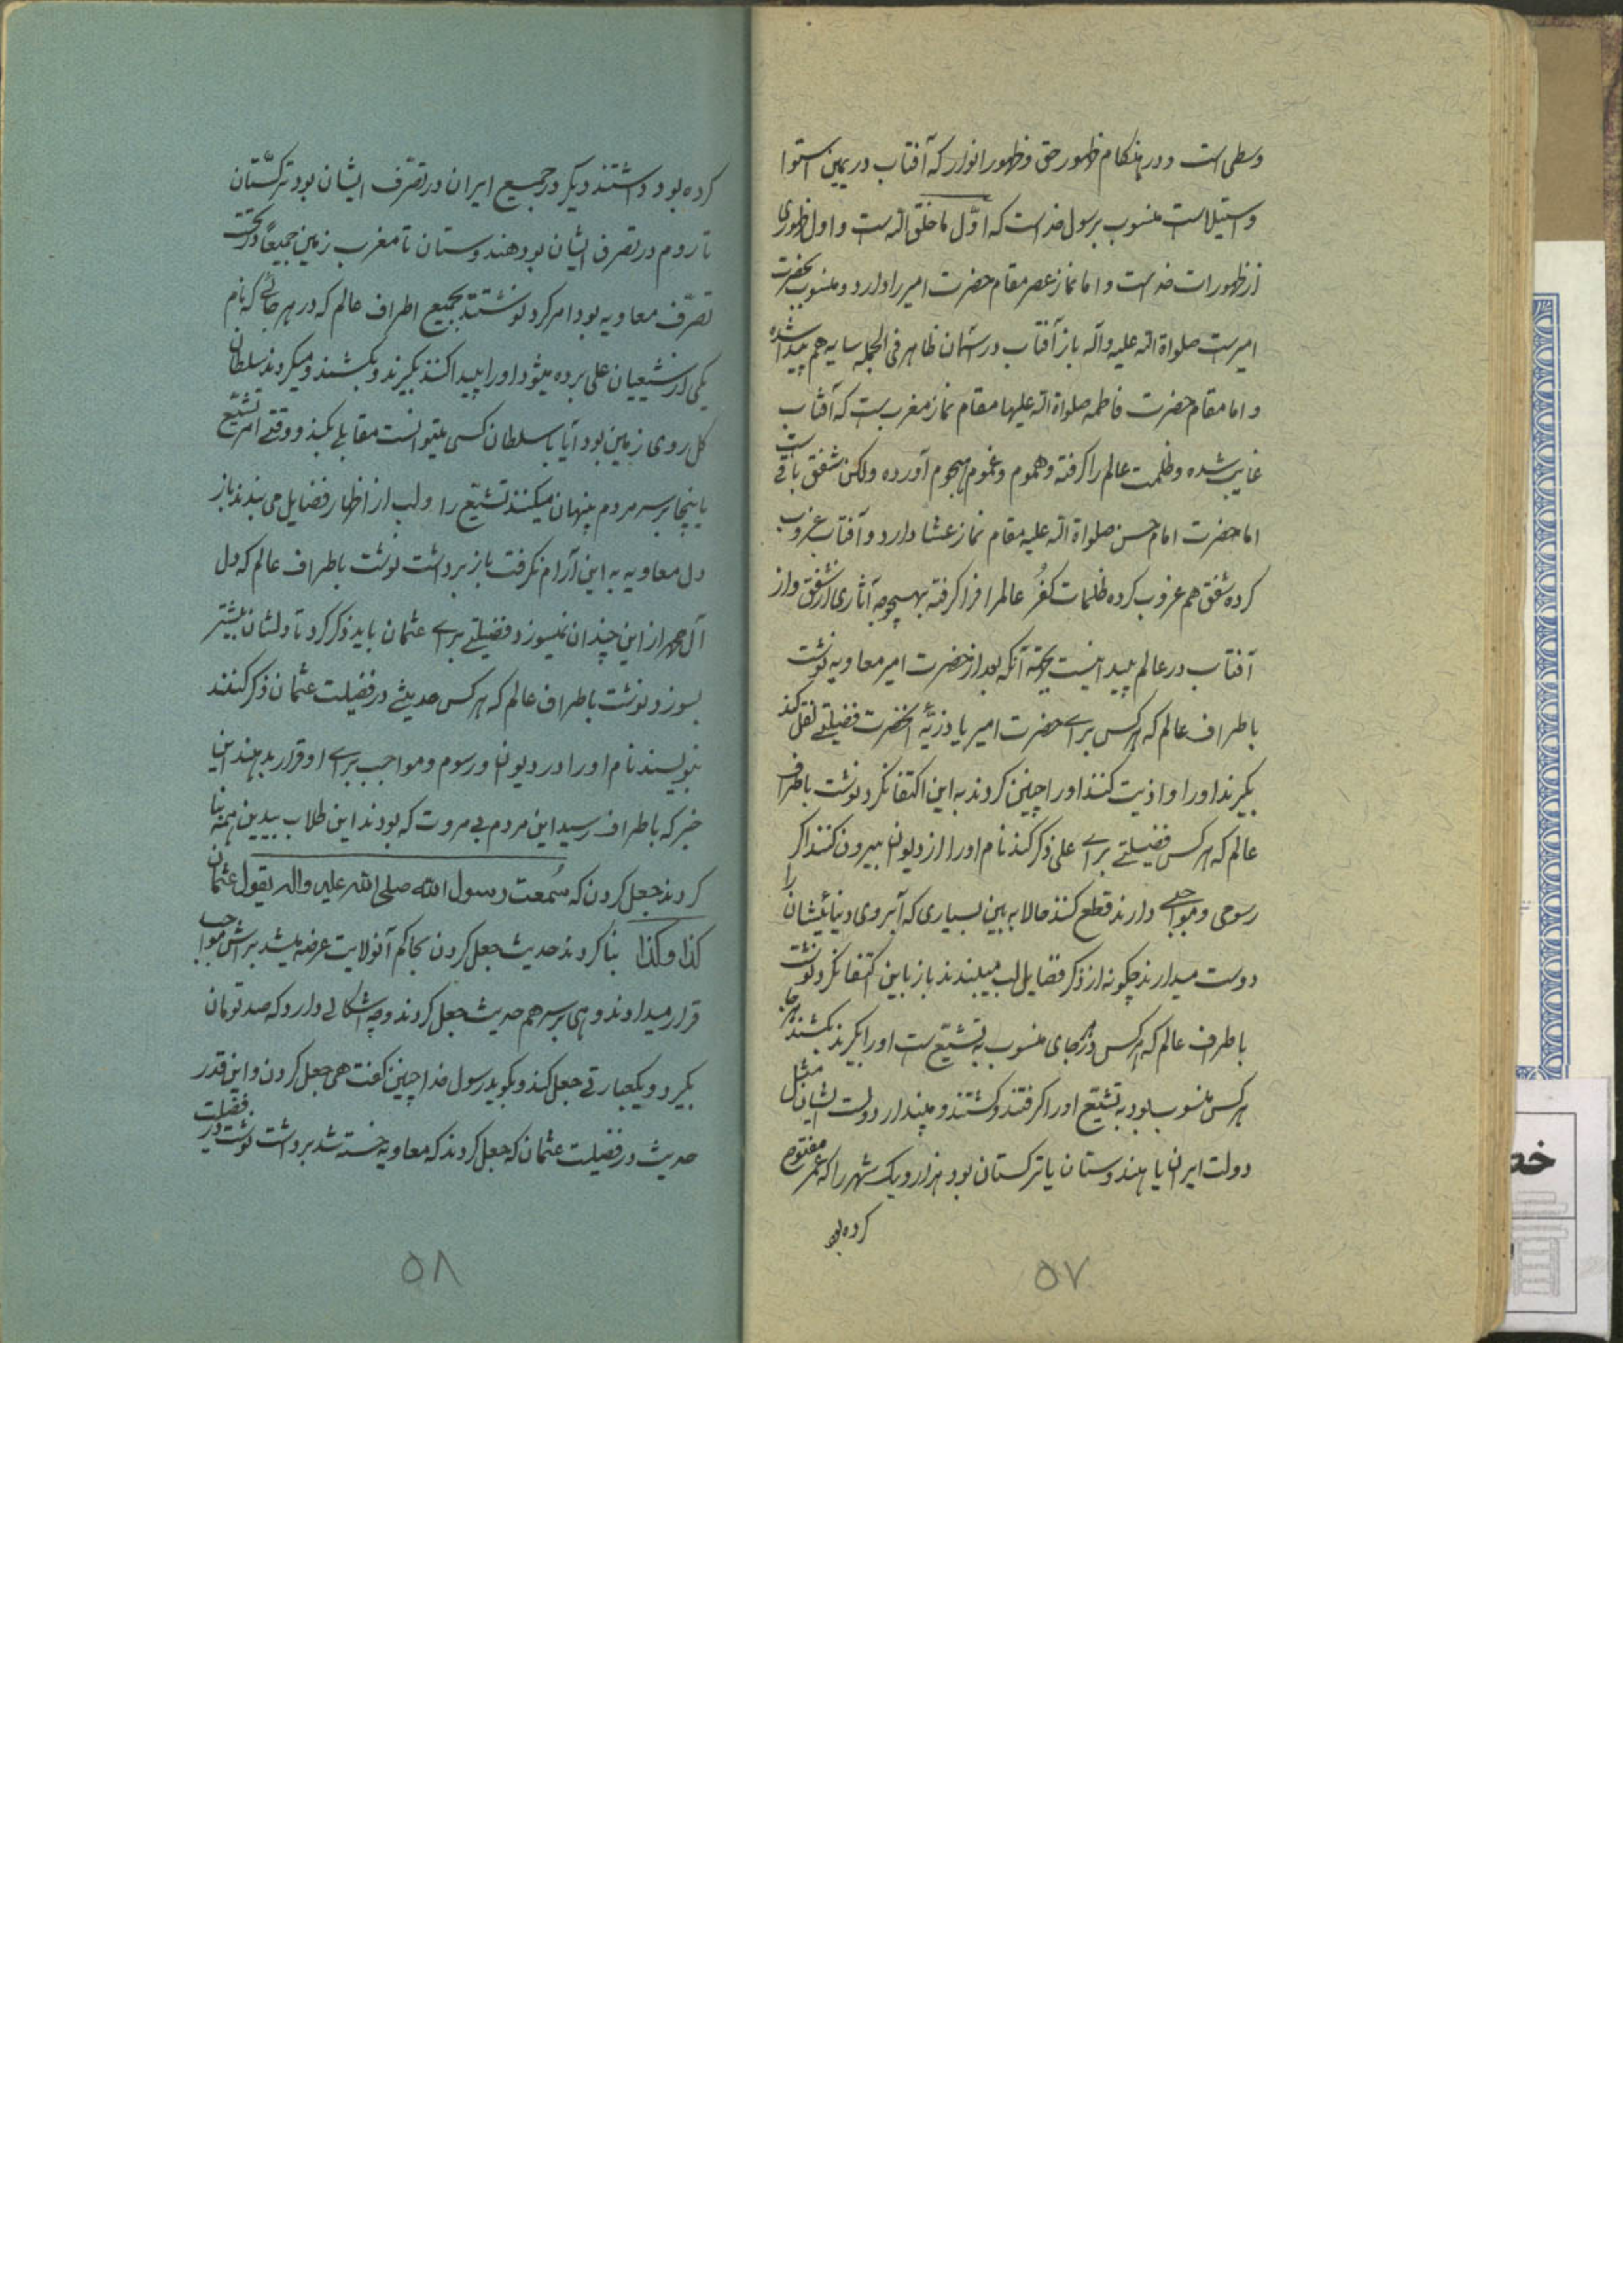 وسطی است و در هنکام ظهور حق و ظهور انوار که آفتاب در یمین استوا
و استیلاست منسوب برسول خداست که اوّل ما خلق الله است و اول ظهوری
از ظهورات خداست و اما نماز عصر مقام حضرت امیر را دارد و منسوب بحضرت
امیرست صلواة الله علیه و آله باز آفتاب در آسمان ظاهر فی الجمله سایه هم پیدا شده
و اما مقام حضرت فاطمه صلواة الله علیها مقام نماز مغرب ست که آفتاب
غایب شده و ظلمت عالم را کرفته و هموم و غموم هجوم آورده ولکن شفق باقی ست
اما حضرت امام حسن صلواة الله علیه مقام نماز عشا دارد و آفتاب غروب
کرده شفق هم غروب کرده ظلمات کفرُ عالمرا فرا کرفته بهیچوجه آثاری از شفق و از
آفتاب در عالم پیدا نیست بجهة آنکه بعد از حضرت امیر معاویه نوشت
باطراف عالم که هرکس برای حضرت امیر یا ذریّهٔ آنحضرت فضیلتی نقل کند
بکیرند او را و اذیت کنند او را چنین کردند به این اکتفا نکرد نوشت باطراف
عالم که هرکس فضیلتی برای علی ذکر کند نام او را از دیوان بیرون کنند اکر
رسومی و مواجبی دارند قطع کنند حالا به بین بسیاری که آبروی دنیائیشان را
دوست میدارند چکونه از ذکر فضایل لب میبندند باز باین اکتفا نکرد نوشت
باطرف عالم که هرکس در هر جای منسوب به تشیّع ست او را بکیرند بکشند هر جا
هرکس منسوب بود به تشیّع او را کرفتند و کشتند و مپندار دولت ایشان مثل
دولت ایران یا هندوستان یا ترکستان بود هزار و یک شهر را که عمر مفتوح
کرده بود
۵۷
کرده بود داشتند دیکر در جمیع ایران در تصرّف ایشان بود ترکستان
تا روم در تصرف ایشان بود هندوستان تا مغرب زمین جمیعاً در تحت
تصرّف معاویه بود امر کرد نوشتند بجمیع اطراف عالم که در هر جائی که نام
یکی از شیعیان علی برده میشود او را پیدا کنند بکیرند و بکشند و میکردند سلطان
کل روی زمین بود آیا با سلطان کسی میتوانست مقابلی بکند و وقتی امر تشیّع
باینجا برسد مردم پنهان میکنند تشیّع را و لب از اظهار فضایل می بندند باز
دل معاویه به این آرام نکرفت باز برداشت نوشت باطراف عالم که دل
آل محمد از این چندان نمیسوزد فضیلتی برای عثمان باید ذکر کرد تا دلشان بیشتر
بسوزد نوشت باطراف عالم که هرکس حدیثی در فضیلت عثمان ذکر کنند
بنویسند نام او را در دیوان و رسوم و مواجب برای او قرار بدهند این
خبر که باطراف رسید این مردم بی مروت که بودند این طلاب بیدین همه بنا
کردند جعل کردن که سُمعت رسول الله صلی الله علیه واله یقول عثمان
کذا وکذا بنا کردند حدیث جعل کردن بحاکم آنولایت عرضه میشد برایش مواجب
قرار میدادند و هی بر سر هم حدیث جعل کردند و چه اشکالی دارد که صد تومان
بکیرد و یکعبارتی جعل کند و بکوید رسول خدا چنین کفت هی جعل کردن و این قدر
حدیث در فضیلت عثمان که جعل کردند که معاویه خسته شد برداشت نوشت در فضیلت
۵۸